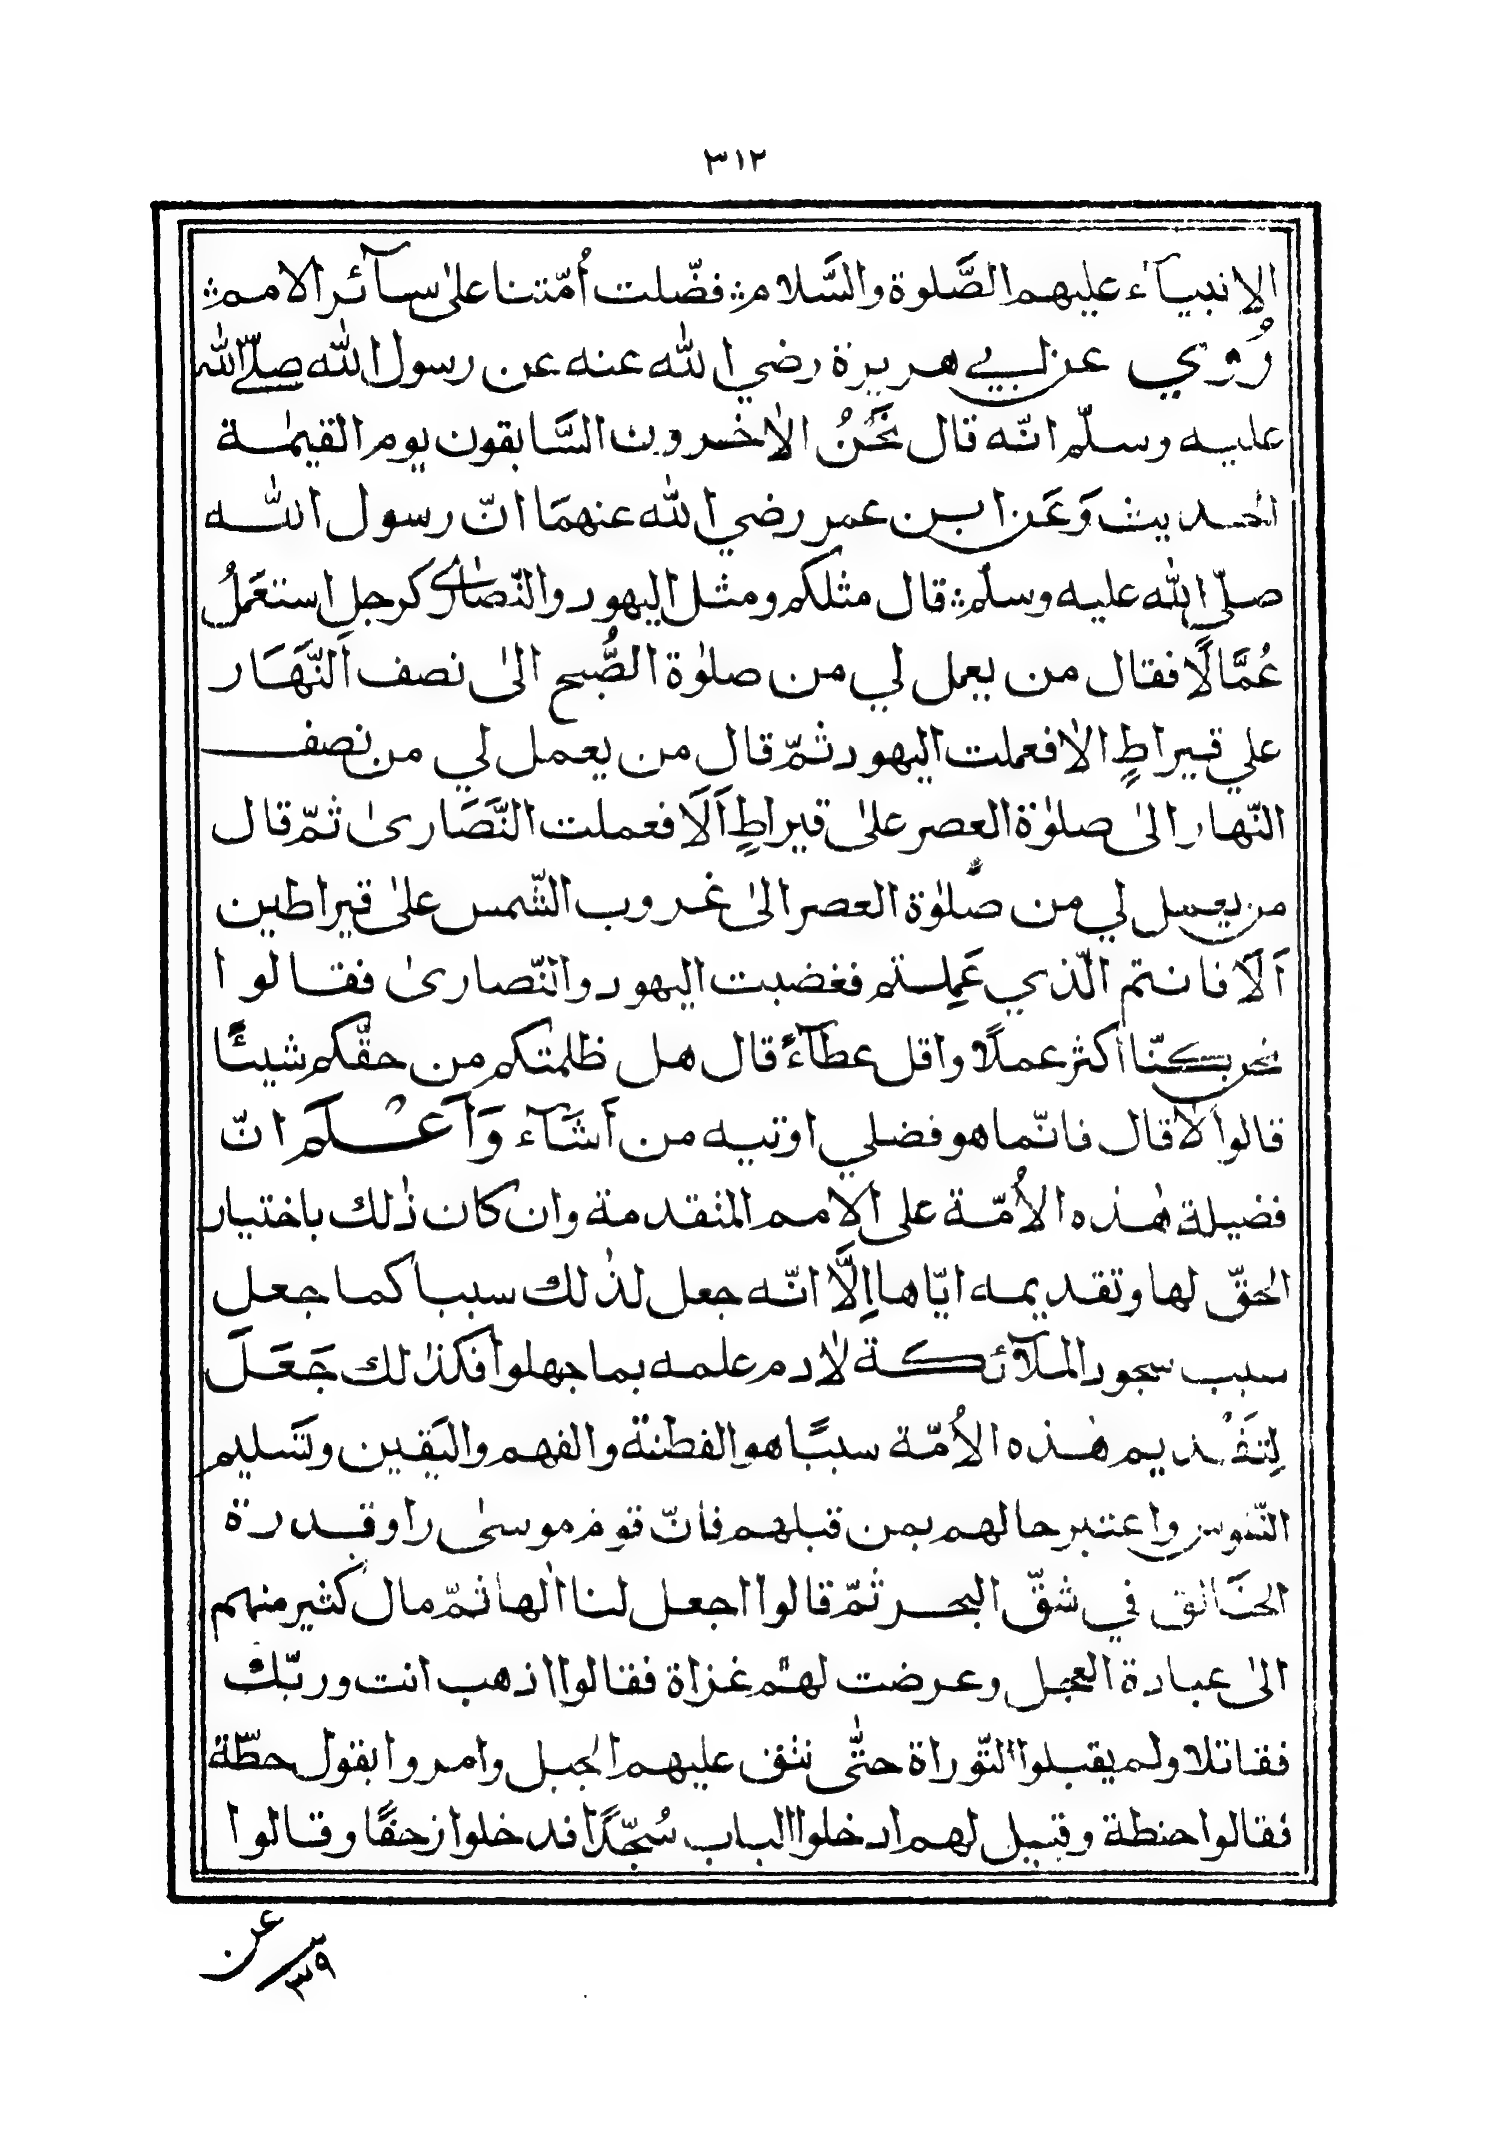 ٣١٢
الانبيآء عليهم الصَّلوة والسَّلام ⁘ فضّلت أُمّتنا علىٰ سآئر الامم ⁘
رُوي عن ابي هريرة رضي الله عنه عن رسول الله صلّى الله
عليه وسلّم انّه قال نَحْنُ الاٰخرون السَّابقون يوم القيٰمة
الحديث وَعَن ابن عمر رضي الله عنهمَا انّ رسول الله
صلّى الله عليه وسلّم ⁘ قال مثلكم ومثل اليهود والنّصارىٰ كرجل استعَملُ
عُمَّالًا فقال من يعمل لي من صلوٰة الصُّبح الىٰ نصف اَلنَّهَار
علي قيراطٍ الا فعملت اليهود ثمّ قال من يعمل لي من نصف
النّهار الىٰ صلوٰة العصر علىٰ قيراطٍ اَلَا فعملت النَّصَارىٰ ثمّ قال
من يعمل لي من صلوٰة العصر الىٰ غروب الشّمس علىٰ قيراطين
اَلَا فانتم الّذي عَمِلتم فغضبت اليهود والنّصارىٰ فقالوا
نحن كنّا أكثر عملًا واقل عطآءً قال هل ظلمتكم من حقّكم شيئًا
قالوا لا قال فانّما هو فضلي اوتيه من أشَآء وَاَعْلَم انّ
فضيلة هٰذه الأُمّة على الامم المتقدمة وان كان ذٰلك باختيار
الحقّ لها وتقديمه ايّاها اِلَّا انّه جعل لذٰلك سببا كما جعل
سبب سجود الملآئكة لاٰدم علمه بما جهلوا فكذٰلك جَعَلَ
لِتَقْديم هٰذه الأُمّة سببًا هو الفطنة والفهم واليَقين وتَسليم
النّفوس واعتبر حالهم بمن قبلهم فانّ قوم موسىٰ راو قدرة
الخَالق في شقّ البحر ثمّ قالوا اجعل لنا الٰها ثمّ مال كثير منهم
الىٰ عبادة العجل وعرضت لهم غزاة فقالوا اذهب انت وربّك
فقاتلا ولم يقبلوا التّوراة حتّى نتق عليهم الجبل وامروا بقول حطّة
فقالوا حنطة وقيل لهم ادخلوا الباب سُجّدًا فدخلوا زحفًا وقالوا
عن
٣٩